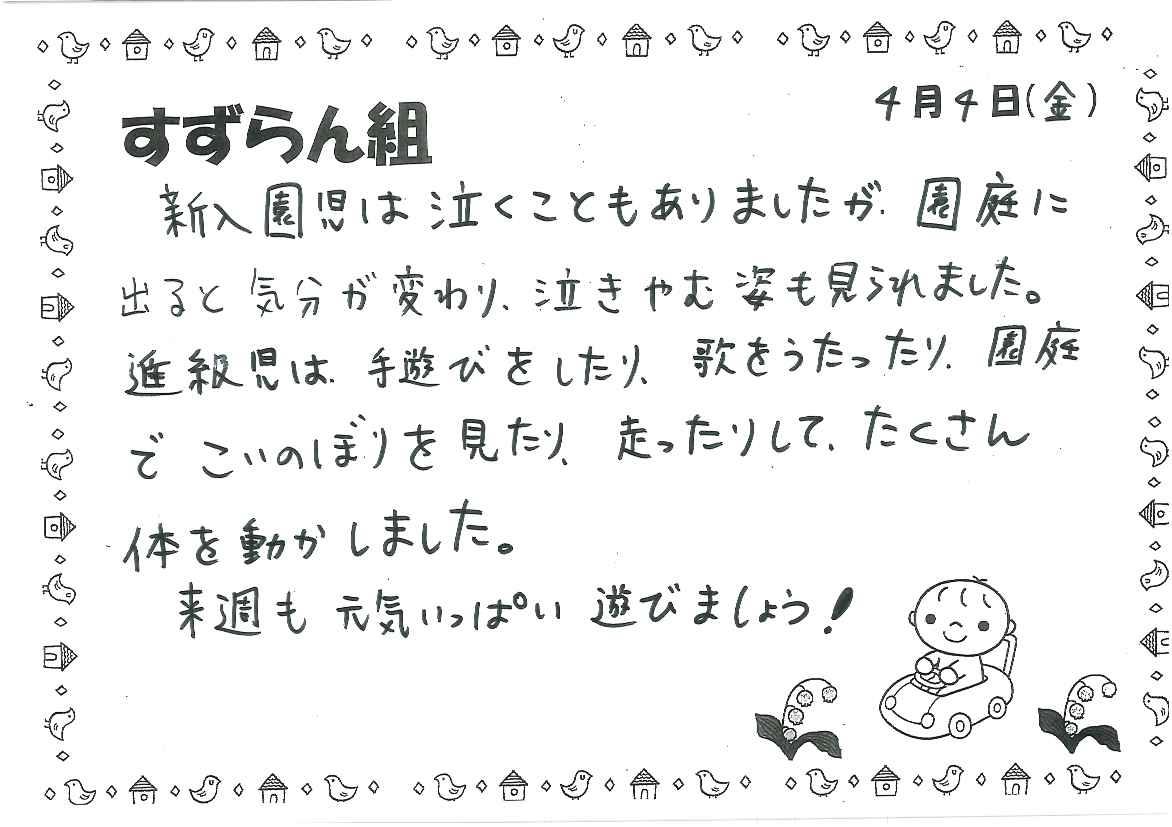 4月4日(金)
すずらん組
新入園児は泣くこともありましたが、園庭に
出ると気分が変わり、泣きやむ姿も見られました。
進級児は、手遊びをしたり、歌をうたったり、園庭
でこいのぼりを見たり、走ったりして、たくさん
体を動かしました。
来週も元気いっぱい遊びましょう!